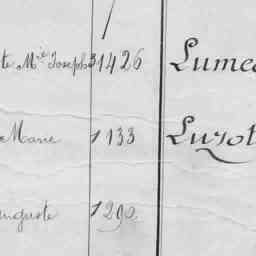 te Mie Joseph 31426 Lumea
Marie 1133 Luzot
Auguste 1290